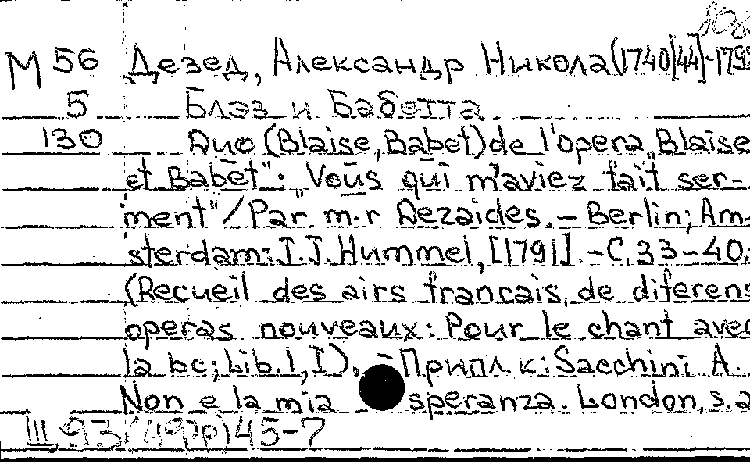 M 56 Дезед, Александр Никола (1740[44]-179
5 Блэз и Бабетта
130 Duo (Blaise, Babet) de l'opera „Blaise
et Babet": „Vous qui m'aviez fait ser-
ment" / Par m-r Dezaides. – Berlin; Am-
sterdam: J.J. Hummel, [1791]. – С. 33–40.
(Recueil des airs francais, de diferens
operas nouveaux: Pour le chant avec
la bc; Lib. 1, I). – Припл. к: Sacchini A.
Non e la mia speranza. London, s.a
III 45-7